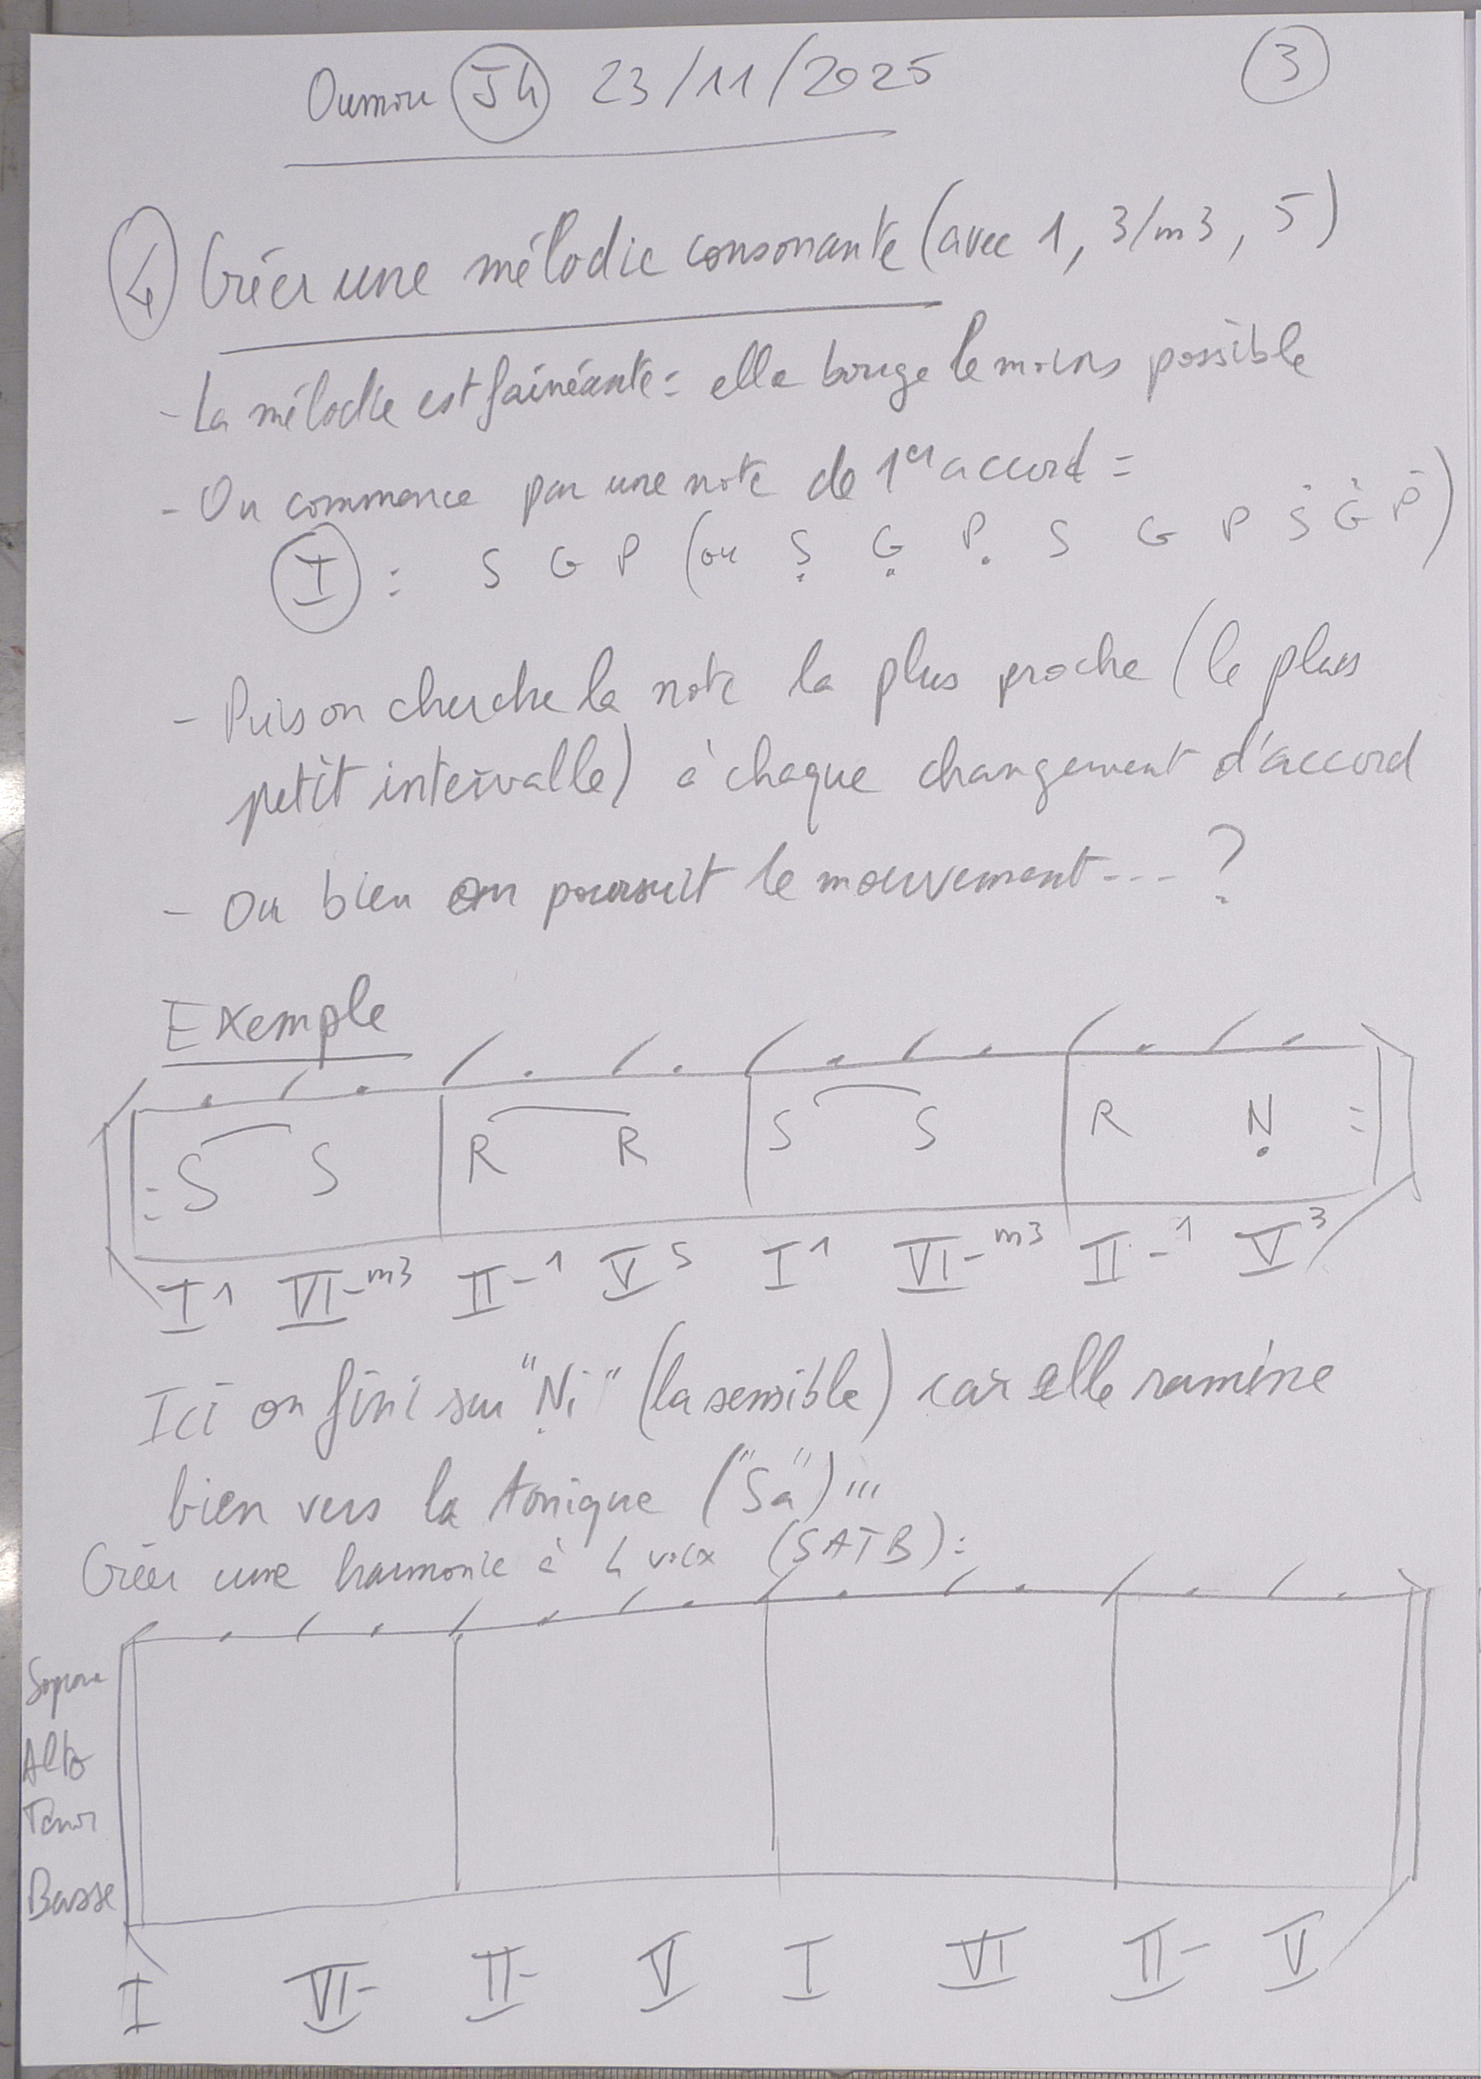 Oumou J4 23/11/2025
3
4 Créer une mélodie consonante (avec 1, 3/m3, 5)
- La mélodie est fainéante = elle bouge le moins possible
- On commence par une note de 1er accord =
I : S G P (ou Ṣ G̣ P̣ S G P Ṡ Ġ Ṗ)
- Puis on cherche la note la plus proche (le plus
petit intervalle) à chaque changement d'accord
- Ou bien on poursuit le mouvement --- ?
Exemple
S S R R S S R Ṇ
I1 VI-m3 II-1 V5 I1 VI-m3 II-1 V3
Ici on fini sur "Ṇi" (la sensible) car elle ramène
bien vers la tonique ("Sa") ...
Créer une harmonie à 4 voix (SATB) :
Soprane
Alto
Tenor
Basse
I VI- II- V I VI II- V